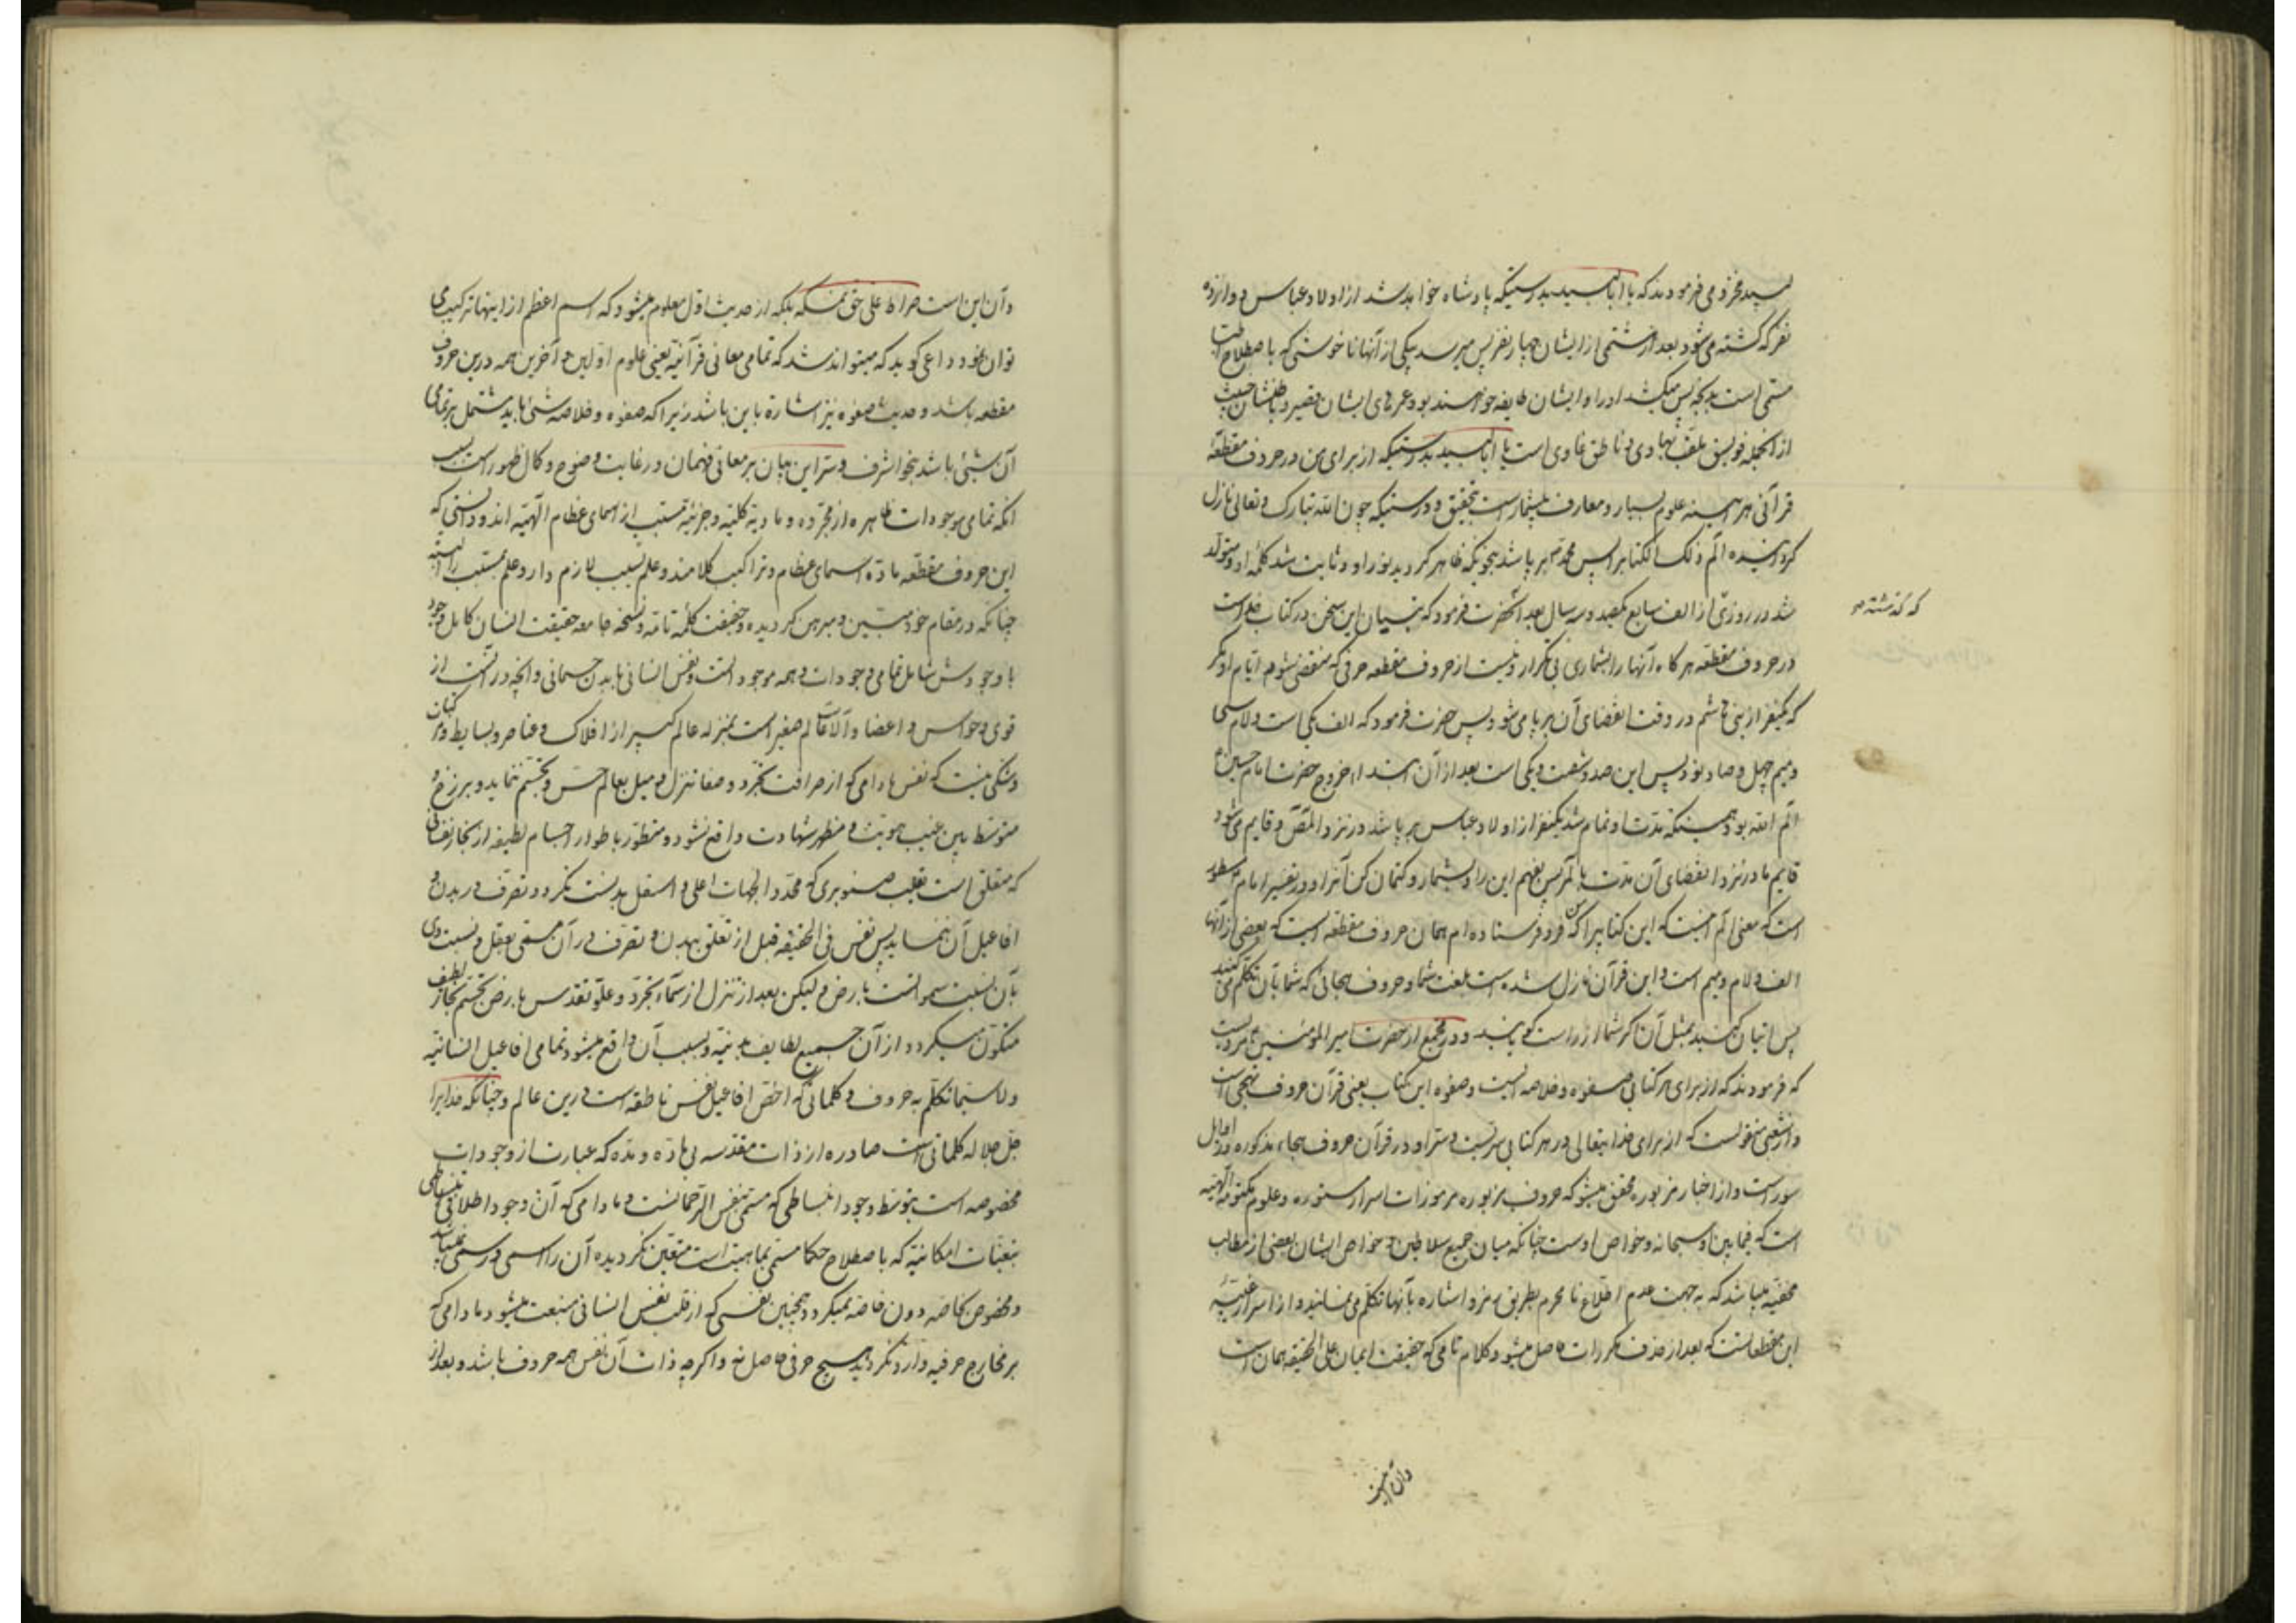 لبید مخزومی فرمودند که یا ابا لبید بدرستیکه پادشاه خواهد شد از اولاد عباس دوازده
نفر که کشته می‌شود بعد از هشتمی از ایشان چهار نفر پس میرسد یکی از آنها ناخوشی که باصطلاح
مسمی است بذبحه پس میکشد او را و ایشان طایفه خواهند بود عمرهای ایشان قصیر و
از انجمله فویسق ملقب بهادی و ناطق غاوی است یا ابا لبید بدرستیکه از برای من در حروف مقطعه
قرآنی هر آینه علوم بسیار و معارف بیشمار است بتحقیق و درستیکه چون الله تبارک و تعالی نازل
کردانیده الم ذلک الکتاب پس محمد برپا شد بنحویکه ظاهر کردید نور او و ثابت شد کلمه او و متولد
شد در روزی از الف سابع یکصد و سه سال بعد آنحضرت فرمود که تبیان این سخن در کتاب خدا است
که گذشته بود
در حروف مقطعه هر گاه آنها را بشماری بی تکرار و نیست از حروف مقطعه حرفی که منقضی شود ایام او مگر
که یکنفر از بنی هاشم در وقت انقضای آن برپا می‌شود پس حضرت فرمود که الف یکی است و لام سی
و میم چهل و صاد نود پس این صد و شصت و یکی است بعد از آن ابتداء خروج حضرت امام حسین
الم الله بود و همینکه مدت او تمام شد یکنفر از اولاد عباس برپا شد در نزد المص و قایم می‌شود
قایم ما در نزد انقضای آن مدت بالمر پس بفهم این را و بشمار و کتمان کن آنرا و در تفسیر امام مسطور
است که معنی الم اینست که این کتابیرا که من فرو فرستاده‌ام همان حروف مقطعه است که بعضی از آنها
الف و لام و میم است و این قرآن نازل شده است بلغت شما و حروف هجائی که شما بآن تکلم می کنید
پس اتیان کنید بمثل آن اگر شما از راست گویانید و در مجمع از حضرت امیر المؤمنین مرویست
که فرمودند که از برای هر کتابی صفوه و خلاصه ایست و صفوه این کتاب یعنی قرآن حروف تهجی است
و از شعبی منقولست که از برای خدایتعالی در هر کتابی سریست و سر او در قرآن حروف هجاء مذکوره در اوایل
سور است و از اخبار مزبوره محقق میشود که حروف مزبوره مرموزات اسرار مستوره و علوم مکنونه الهیه
است که فیما بین او سبحانه و خواص اوست چنانکه میان جمیع سلاطین و خواص ایشان بعضی از مطالب
مخفیه میباشد که به جهت عدم اطلاع نامحرم بطریق رمز و اشاره بآنها تکلم می‌نمایند و از اسرار غیبیه
این مقطعاتست که بعد از حذف مکررات حاصل میشود کلام تامی که حقیقت ایمان علی الحقیقه همان است
وآن اینست
و آن این است صراط علی حق نمسکه بلکه از حدیث اول معلوم میشود که اسم اعظم از اینها ترکیب می
توان نمود داعی گوید که میتواند شد که تمامی معانی قرآنیه یعنی علوم اولین و آخرین همه درین حروف
مقطعه باشد و حدیث صفوه نیز اشاره باین باشد زیرا که صفوه و خلاصه شئی باید مشتمل بر تمامی
آن شئی باشد بنحو اشرف و سر این بیان بر معانی فهمان در غایت وضوح و کمال ظهور است بسبب
آنکه تمامی موجودات ظاهره از مجرده و مادیه کلیه و جزئیه مسبب از اسمای عظام الهیه‌اند و دانستی که
این حروف مقطعه ماده اسمای عظام و تراکیب کلامند و علم بسبب لازم دارد علم بمسبب را البته
چنانکه در مقام خود مبین و مبرهن گردیده و حقیقت کلمه تامه و نسخه جامعه حقیقت انسان کامل
با وجودش شامل تمامی وجودات و همه موجود است و نفس انسانی با بدن جسمانی و آنچه در آنست از
قوی و حواس و اعضا و آلات عالم صغیر است بمنزله عالم کبیر از افلاک و عناصر و بسایط و مرکبات
و شکی نیست که نفس مادامی که از صرافت تجرد و صفا تنزل و میل بعالم حس و تجسم ننماید و برزخ و
متوسط بین غیب هویت و مظهر شهادت واقع نشود و متطور باطوار اجسام لطیفه از بخار نفسانی
که متعلق است بقلب صنوبری که محدد الجهات اعلی و اسفل بدنست نکردد و تصرف در بدن و
افاعیل آن ننماید پس نفس فی الحقیقه قبل از تعلق ببدن و تصرف در آن مسمی بعقل و نسبت وی
بآن نسبت سمواتست بارض و لیکن بعد از تنزل از سماء تجرد و علو تقدس بارض تجسم بخار لطیف
متکون میگردد از آن جمیع لطایف بدنیه و بسبب آن واقع میشود تمامی افاعیل انسانیه
و لا سیما تکلم به حروف و کلماتی که اخص افاعیل نفس ناطقه است درین عالم و چنانکه خدایرا
جل جلاله کلماتی است صادره از ذات مقدسه بی ماده و مده که عبارت از وجودات
مخصوصه است بتوسط وجود انبساطی که مسمی بنفس الرحمانست و مادامی که آن وجود اطلاقی انبساطی
بتعینات امکانیه که باصطلاح حکما مسمی بماهیت است متعین نگردیده آن را اسمی و رسمی نمیباشد
و مخصوص بخاصه دون خاصه نمیگردد همچنین نفسی که از قلب نفس انسانی منبعث میشود مادامی که
بر مخارج حرفیه وارد نگردد هیچ حرفی حاصل نه و اگر چه ذات آن نفس همه حروف باشد و بعد از